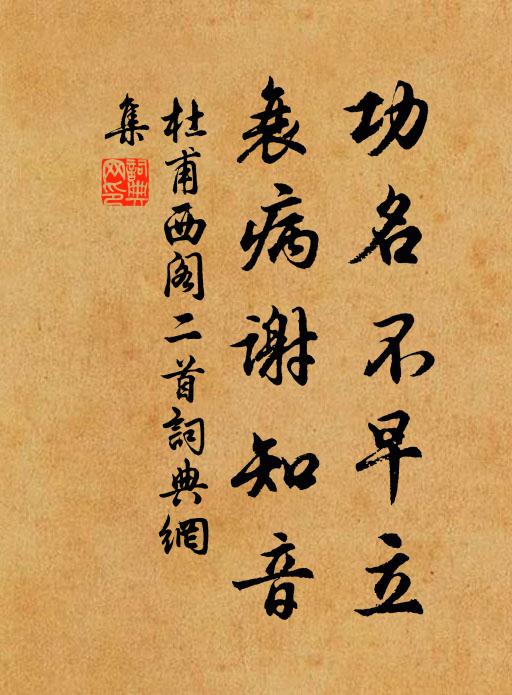 功名不早立
衰病謝知音
杜甫西阁二首詞典網
集
詞典
网印